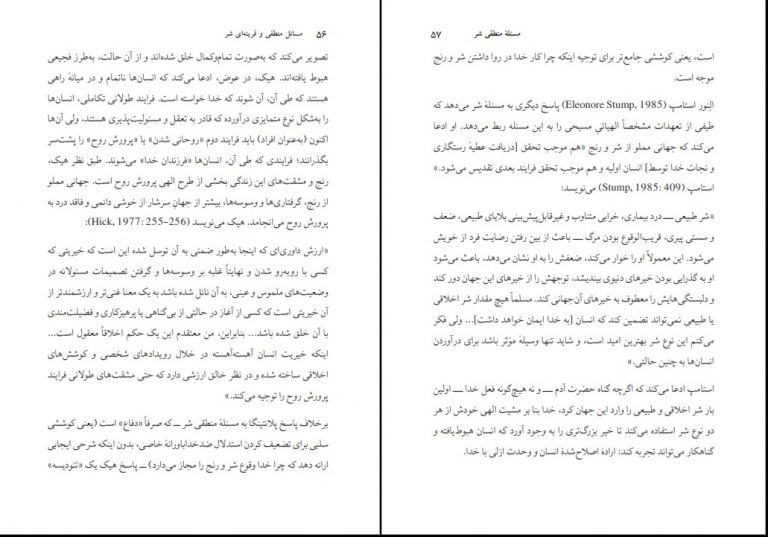 ۵۶ مسائل منطقی و قرینه‌ای شر
تصویر می‌کند که به‌صورت تمام‌وکمال خلق شده‌اند و از آن حالت، به‌طرز فجیعی
هبوط یافته‌اند. هیک، در عوض، ادعا می‌کند که انسان‌ها ناتمام و در میانهٔ راهی
هستند که طی آن، آن شوند که خدا خواسته است. فرایند طولانی تکاملی، انسان‌ها
را به‌شکل نوع متمایزی درآورده که قادر به تعقل و مسئولیت‌پذیری هستند، ولی آن‌ها
اکنون (به‌عنوان افراد) باید فرایند دوم «روحانی شدن» یا «پرورش روح» را پشت‌سر
بگذرانند؛ فرایندی که طی آن، انسان‌ها «فرزندان خدا» می‌شوند. طبق نظر هیک،
رنج و مشقت‌های این زندگی بخشی از طرح الهی پرورش روح است. جهانی مملو
از رنج، گرفتاری‌ها و وسوسه‌ها، بیشتر از جهانِ سرشار از خوشی دائمی و فاقد درد به
پرورش روح می‌انجامد. هیک می‌نویسد (Hick, 1977: 255-256):
«ارزش داوری‌ای که اینجا به‌طور ضمنی به آن توسل شده این است که خیریتی که
کسی با روبه‌رو شدن و نهایتاً غلبه بر وسوسه‌ها و گرفتن تصمیمات مسئولانه در
وضعیت‌های ملموس و عینی، به آن نائل شده باشد به یک معنا غنی‌تر و ارزشمندتر از
آن خیریتی است که کسی از آغاز در حالتی از بی‌گناهی یا پرهیزکاری و فضیلت‌مندی
با آن خلق شده باشد... بنابراین، من معتقدم این یک حکم اخلاقاً معقول است...
اینکه خیریت انسان آهسته‌آهسته در خلال رویدادهای شخصی و کوشش‌های
اخلاقی ساخته شده و در نظر خالق ارزشی دارد که حتی مشقت‌های طولانی فرایند
پرورش روح را توجیه می‌کند.»
برخلاف پاسخ پلانتینگا به مسئلهٔ منطقی شر ــ که صرفاً «دفاع» است (یعنی کوششی
سلبی برای تضعیف کردن استدلال ضدخداباورانهٔ خاصی، بدون اینکه شرحی ایجابی
ارائه دهد که چرا خدا وقوع شر و رنج را مجاز می‌دارد) ــ پاسخ هیک یک «تئودیسه»
مسئلهٔ منطقی شر ۵۷
است، یعنی کوششی جامع‌تر برای توجیه اینکه چرا کار خدا در روا داشتن شر و رنج
موجه است.
الِنور استامپ (Eleonore Stump, 1985) پاسخ دیگری به مسئلهٔ شر می‌دهد که
طیفی از تعهدات مشخصاً الهیاتیِ مسیحی را به این مسئله ربط می‌دهد. او ادعا
می‌کند که جهانی مملو از شر و رنج «هم موجب تحقق [دریافت عطیهٔ رستگاری
و نجات خدا توسط] انسان اولیه و هم موجب تحقق فرایند بعدی تقدیس می‌شود.»
استامپ (Stump, 1985: 409) می‌نویسد:
«شر طبیعی ــ درد بیماری، خرابی متناوب و غیرقابل‌پیش‌بینی بلایای طبیعی، ضعف
و سستی پیری، قریب‌الوقوع بودن مرگ ــ باعث از بین رفتن رضایت فرد از خویش
می‌شود. این معمولاً او را خوار می‌کند، ضعفش را به او نشان می‌دهد، باعث می‌شود
او به گذرایی بودن خیرهای دنیوی بیندیشد، توجهش را از خیرهای این جهان دور کند
و دلبستگی‌هایش را معطوف به خیرهای آن‌جهانی کند. مسلماً هیچ مقدار شر اخلاقی
یا طبیعی نمی‌تواند تضمین کند که انسان [به خدا ایمان خواهد داشت]... ولی فکر
می‌کنم این نوع شر بهترین امید است، و شاید تنها وسیلهٔ مؤثر باشد برای درآوردن
انسان‌ها به چنین حالتی.»
استامپ ادعا می‌کند که اگرچه گناه حضرت آدم ــ و نه هیچ‌گونه فعل خدا ــ اولین
بار شر اخلاقی و طبیعی را وارد این جهان کرد، خدا بنا بر مشیت الهی خودش از هر
دو نوع شر استفاده می‌کند تا خیر بزرگ‌تری را به وجود آورد که انسان هبوط‌یافته و
گناهکار می‌تواند تجربه کند: ارادهٔ اصلاح‌شدهٔ انسان و وحدت ازلی با خدا.